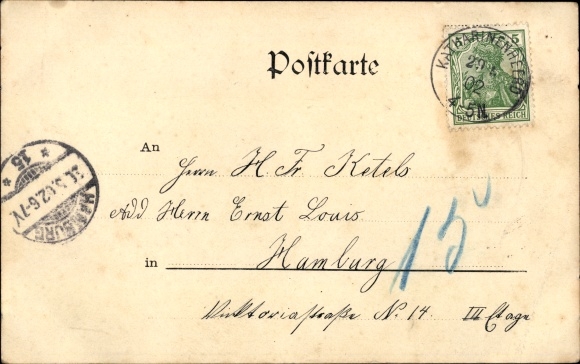 Postkarte
5
KATHARINENHEERD
29 5
02
4-5N
DEUTSCHES REICH
HAMBURG
31.5.02.6-7V
* 15 *
An
Herrn H. Fr. Ketels
Add Herrn Ernst Louis
in Hamburg
15
Viktoriastraße No. 14 III Etage